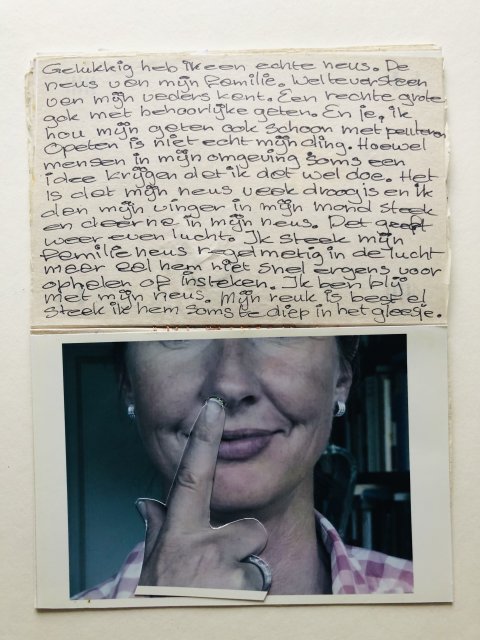 Gelukkig heb ik een echte neus. De
neus van mijn familie. Wel te versteen
van mijn vaders kant. Een rechte grote
gok met behoorlijke gaten. En ja, ik
hou mijn gaten ook schoon met peuteren
Opeten is niet echt mijn ding. Hoewel
mensen in mijn omgeving soms een
idee krijgen dat ik dat wel doe. Het
is dat mijn neus vaak droog is en ik
dan mijn vinger in mijn mond steek
en daarna in mijn neus. Dat geeft
weer even lucht. Ik steek mijn
familie neus regelmatig in de lucht
maar zal hem niet snel ergens voor
ophalen of insteken. Ik ben blij
met mijn neus. Mijn reuk is best al
steek ik hem soms te diep in het glaasje.